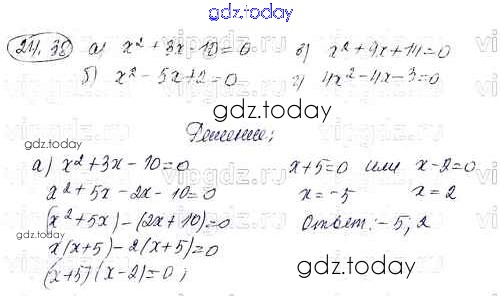 gdz.today
24.38 а) x² + 3x - 10 = 0 в) x² + 9x + 14 = 0
б) x² - 5x + 2 = 0 г) 4x² - 4x - 3 = 0
gdz.today
Решение:
а) x² + 3x - 10 = 0 x + 5 = 0 или x - 2 = 0
gdz.today
x² + 5x - 2x - 10 = 0 x = -5 x = 2
(x² + 5x) - (2x + 10) = 0 Ответ: -5; 2
x(x + 5) - 2(x + 5) = 0
(x + 5)(x - 2) = 0;
gdz.today